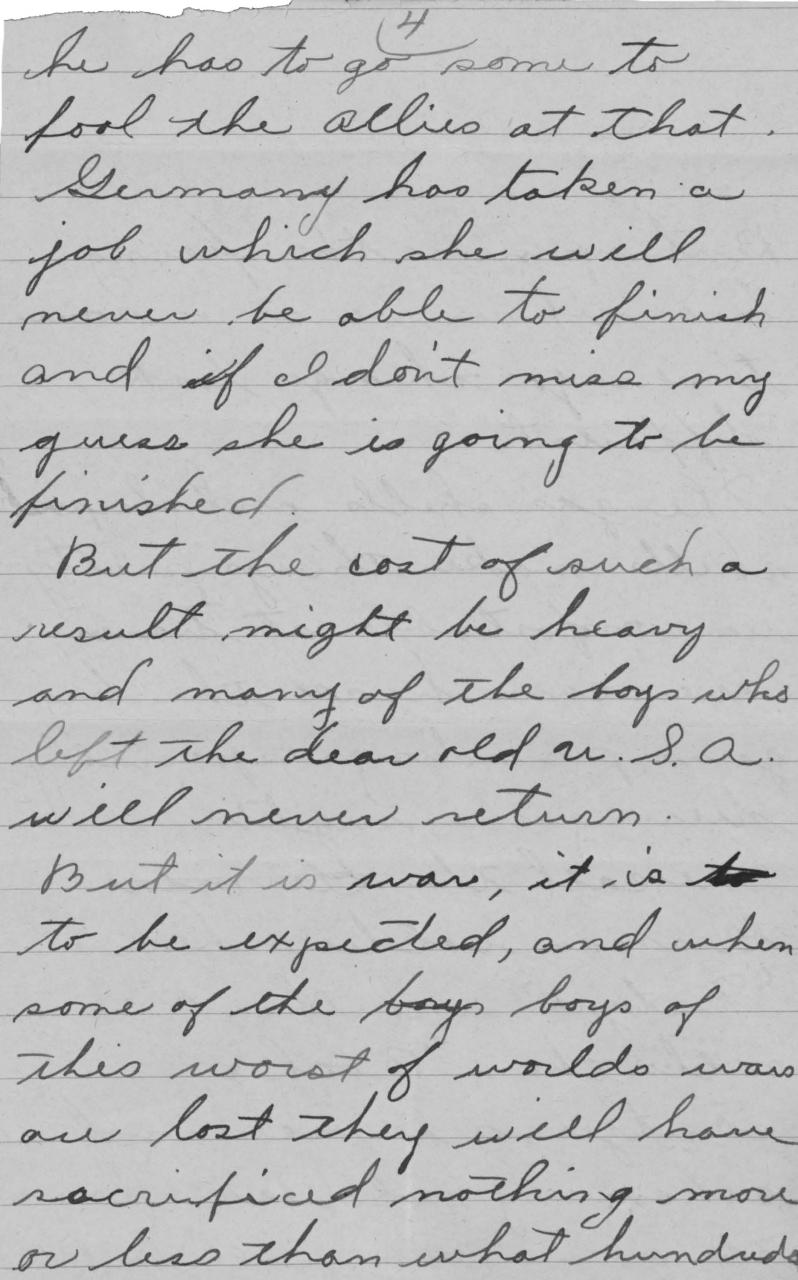 4
he has to go some to
fool the allies at that.
Germany has taken a
job which she will
never be able to finish
and if I don't miss my
guess she is going to be
finished.
But the cost of such a
result might be heavy
and many of the boys who
left the dear old U.S.A.
will never return.
But it is war, it is to
to be expected, and when
some of the boys boys of
this worst of worlds wars
are lost they will have
sacrificed nothing more
or less than what hundreds